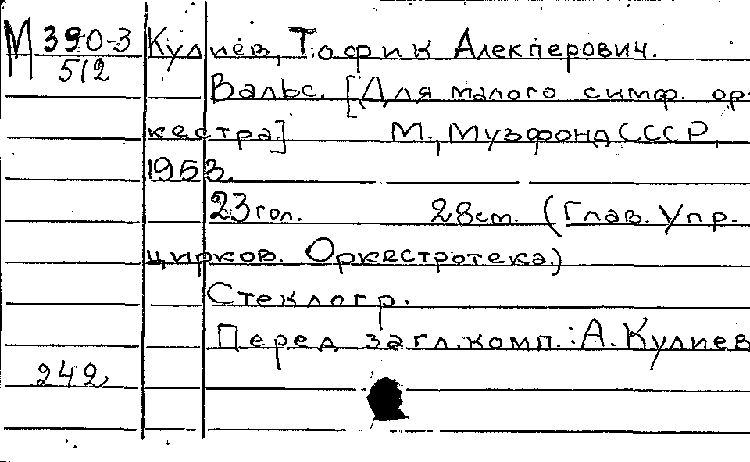 М 390-3 Кулиев, Тофик Алекперович.
512
Вальс. [Для малого симф. ор-
кестра] М., Музфонд СССР,
1953.
23 гол. 28 cm. (Глав. Упр.
цирков. Оркестротека.)
Стеклогр.
Перед загл. комп.: А. Кулиев
242